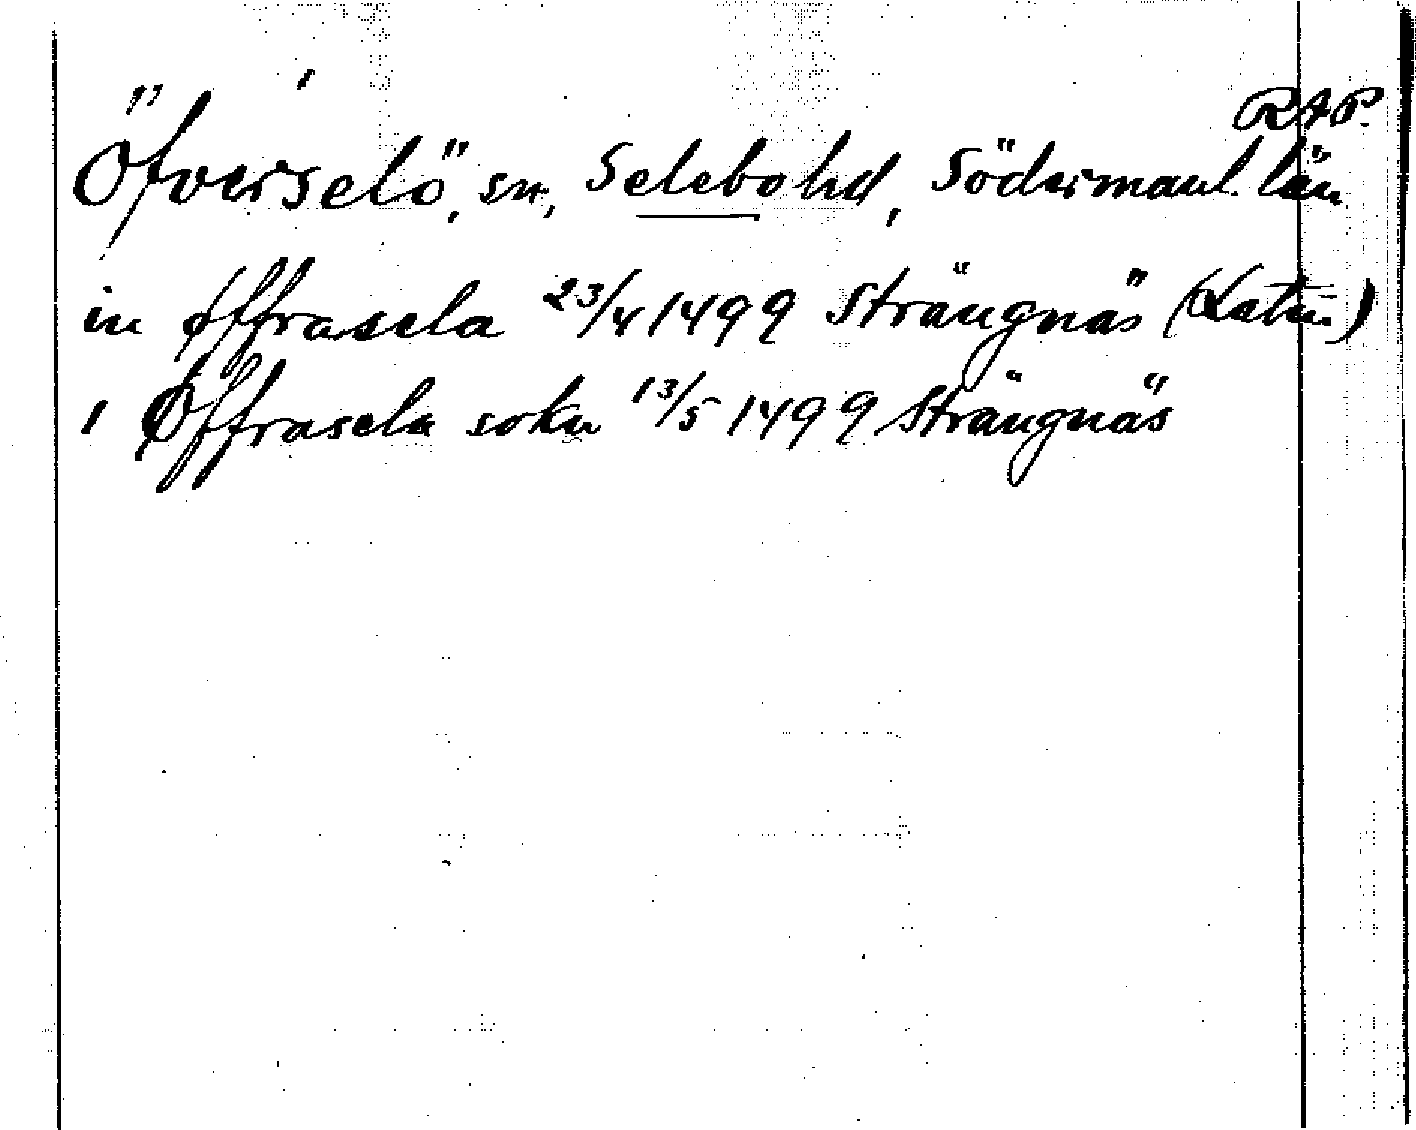 RAP.
Öfverselö, sn, Selebo hd, Södermanl. län
in øffrasela 23/4 1499 Strängnäs (Latin)
i Øffrasela sokn 13/5 1499 Strängnäs